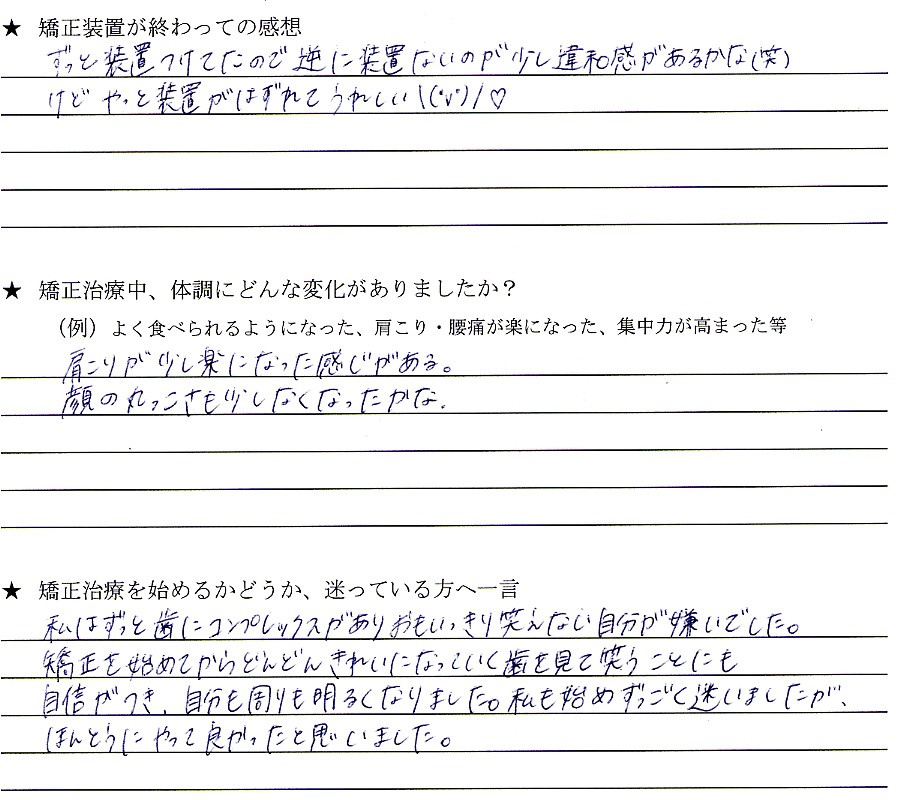 ★ 矯正装置が終わっての感想
ずっと装置つけてたので逆に装置ないのが少し違和感があるかな(笑)
けど やっと装置がはずれてうれしい\(°v°)/♡
★ 矯正治療中、体調にどんな変化がありましたか？
（例）よく食べられるようになった、肩こり・腰痛が楽になった、集中力が高まった等
肩こりが少し楽になった感じがある。
顔の丸っこさも少しなくなったかな.
★ 矯正治療を始めるかどうか、迷っている方へ一言
私はずっと歯にコンプレックスがありおもいっきり笑えない自分が嫌いでした。
矯正を始めてからどんどんきれいになっていく歯を見て笑うことにも
自信がつき、自分も周りも明るくなりました。私も始めすっごく迷いましたが、
ほんとうにやって良かったと思いました。